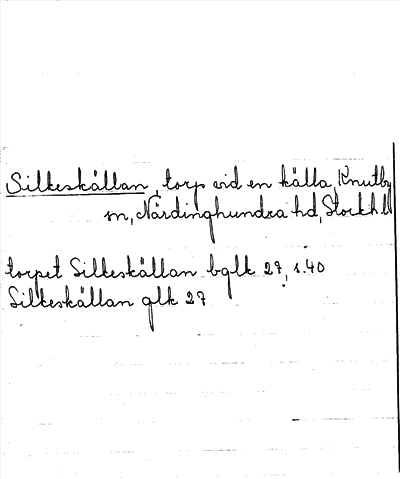 Silkeskällan, torp vid en källa, Knutby
sn, Närdinghundra hd, Stockh. l.
torpet Silkeskällan bglk 27, s. 40
Silkeskällan glk 27